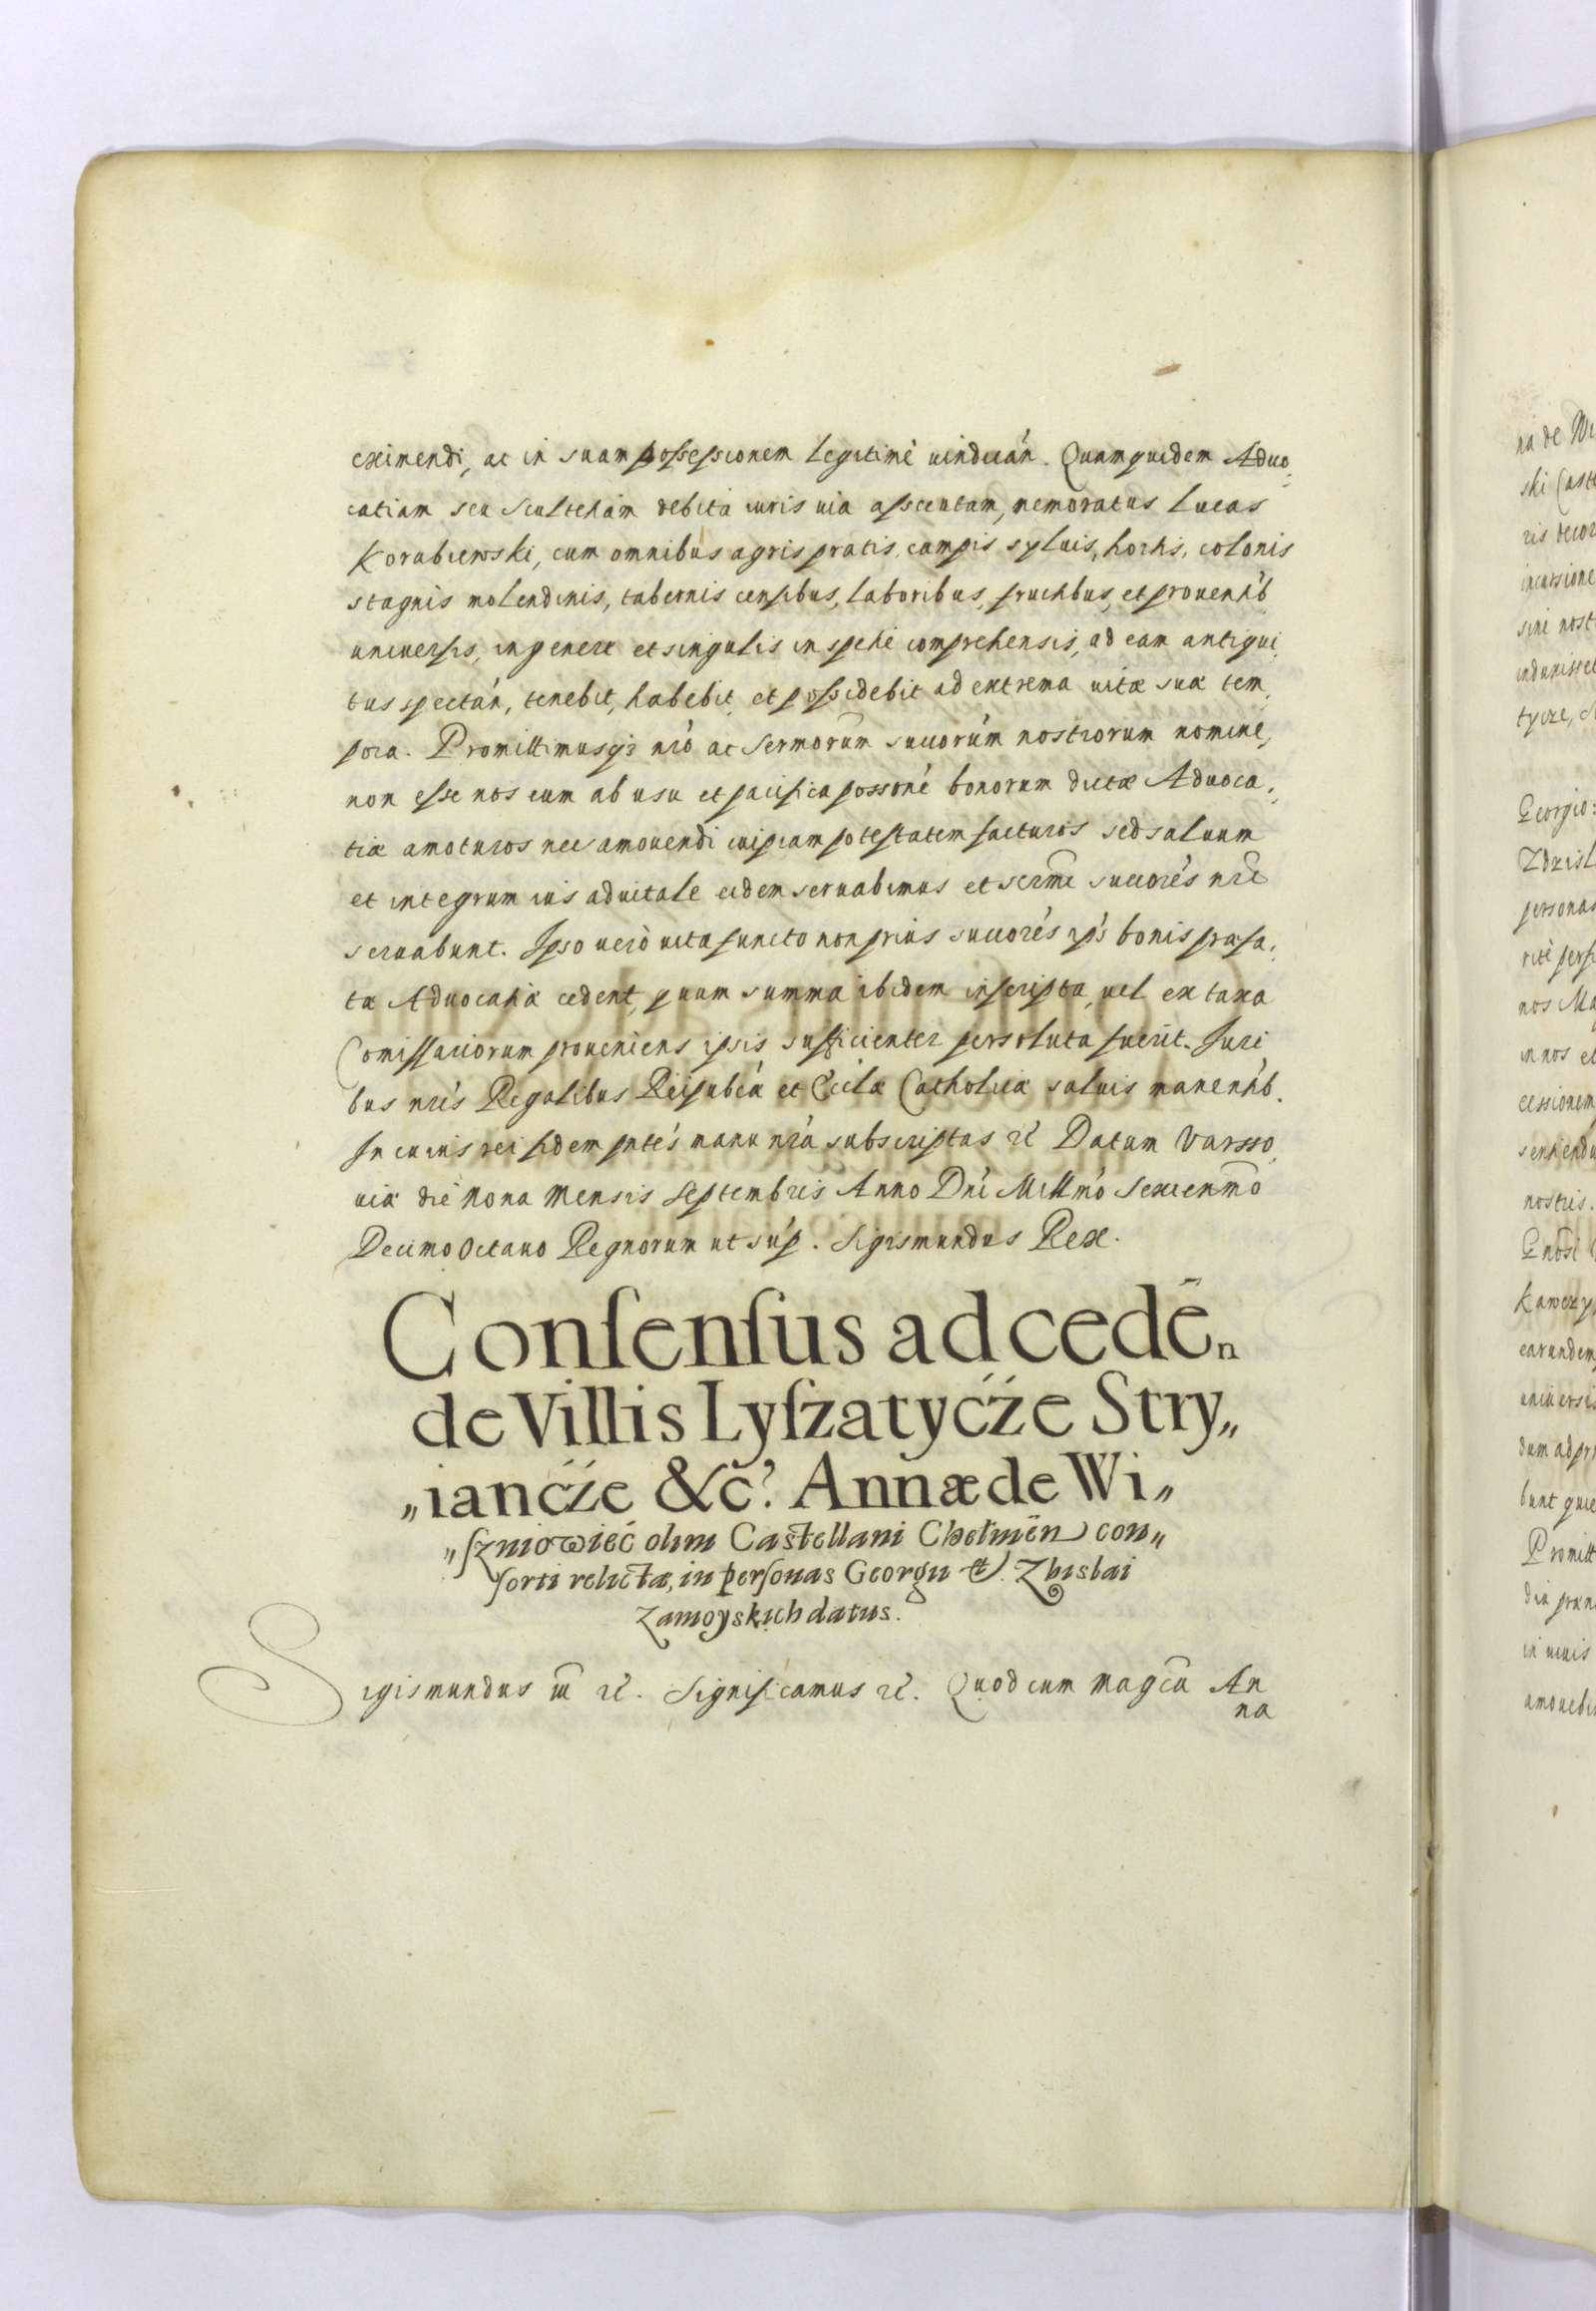 eximendi, ac in suam possessionem legitimè uindicań. Quamquidem Aduo
catiam seu Scultetiam debita iuris uia assecutam, memoratus Lucas
Korabiewski, cum omnibus agris pratis, campis syluis, hortis, colonis
stagnis molendinis, tabernis censibus, laboribus, fructibus, et prouentib
uniuersis, in genere et singulis in specie comprehensis, ad eam antiqui
tus spectań, tenebit, habebit, et possidebit ad extrema uitæ suæ tem
pora. Promittimusqз nro ac Sermorum succorum nostrorum nomine,
non esse nos eum ab usu et pacifica possone bonorum dictæ Aduoca,
tiæ amoturos nec amouendi cuipiam potestatem facturos sed saluum
et integrum ius aduitale eidem seruabimus et sermi succores nri
seruabunt. Ipso uerò uita functo non prius succores ips bonis præfa,
tæ Aduocatiæ cedent, quam summa ibidem inscripta, uel ex taxa
Comissariorum proueniens ipsis sufficienter persoluta fuerit. Juri
bus nris Regalibus Reipubca et Eccla Catholicæ saluis manentib.
In cuius rei fidem pntes manu nra subscriptas &c Datum Varsso,
uiæ die Nona Mensis Septembris Anno Dni Millmo Sexcenmo
Decimo Octauo Regnorum ut sup. Sigismundus Rex.
Conſenſus ad cedē n
de Villis Lyſzatyćźe Stry„
„iancźe &c̃? Annæ de Wi„
„ſzniowieć olim Castellani Chełmēn con„
ſorti relictæ, in perſonas Georgii &. Zbislai
Zamoyskich datus.
Sigismundus iii &c. Significamus &c. Quod cum Magca An
na